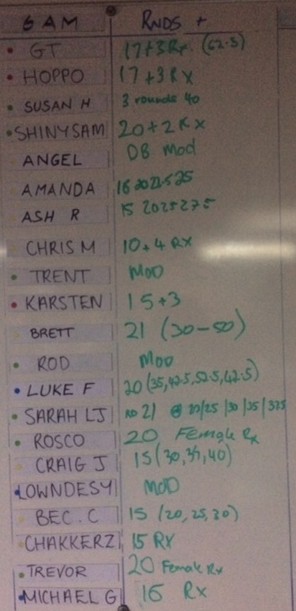 6 AM RNDS +
GT 17+3Rx (62.5)
HOPPO 17+3RX
SUSAN H 3 rounds 40
SHINYSAM 20+2Rx
ANGEL DB Mod
AMANDA 16 20 22.5 25
ASH R 15 20 25 27.5
CHRIS M 10+4 RX
TRENT MOD
KARSTEN 15+3
BRETT 21 (30-50)
ROD MOD
LUKE F 20 (35,42.5,52.5,62.5)
SARAH LJ 21 @ 20/25/30/35/37.5
ROSCO 20 FEMale Rx
CRAIG J 15 (30,37,40)
LOWNDESY MOD
BEC.C 15 (20,25,30)
CHAKKERZ 15 RX
TREVOR 20 Female Rx
MICHAEL G 16 Rx